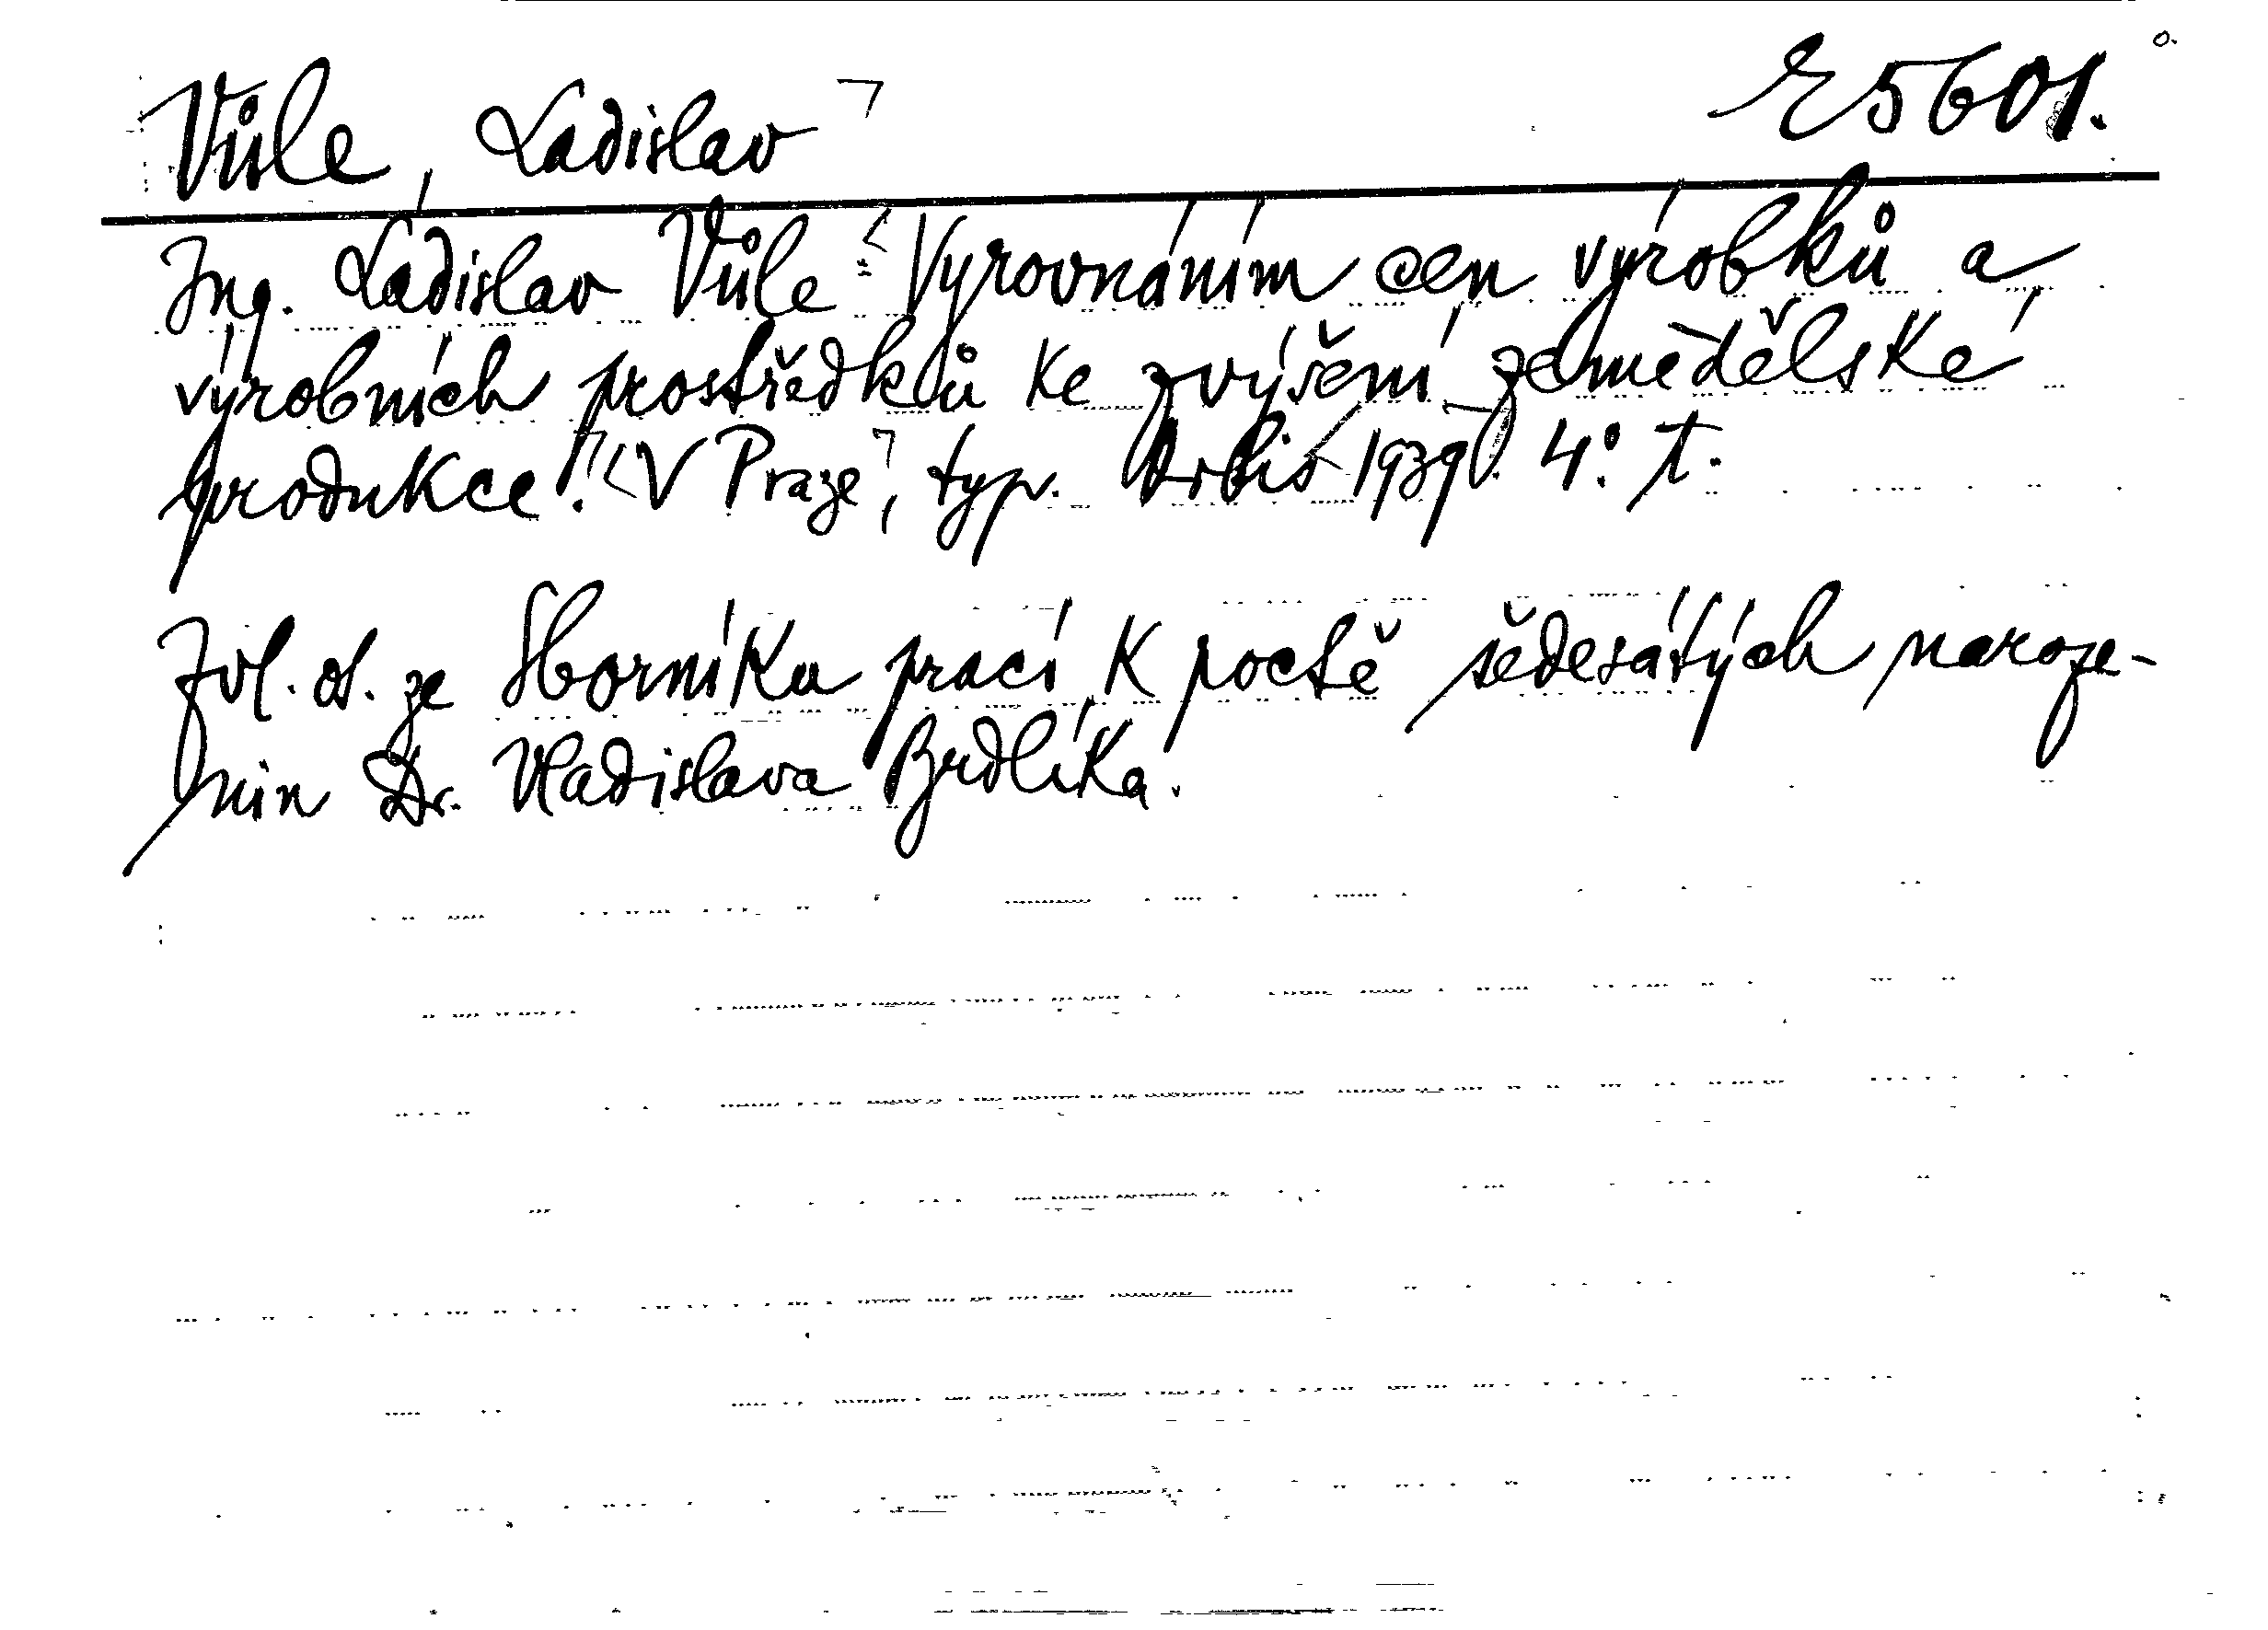 Vůle, Ladislav
Ing. Ladislav Vůle: Vyrovnáním cen výrobků a
výrobních prostředků ke zvýšení zemědělské
produkce. V Praze, typ. Orbis 1939. 4°. t.
Zvl. ot. ze Sborníku prací k poctě šedesátých naroze-
nin Dr. Vladislava Brdlíka.